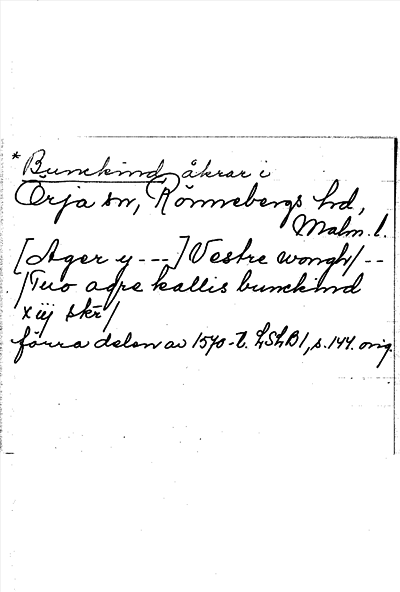 *Bunckind, åkrar i
Örja sn, Rönnebergs hd,
Malm. l.
[Ager y ---] Vestre wongh/--
/Tuo agre kallis bunckind
x iij skr/
förra delen av 1570-t. LSLB1, s. 144. orig.